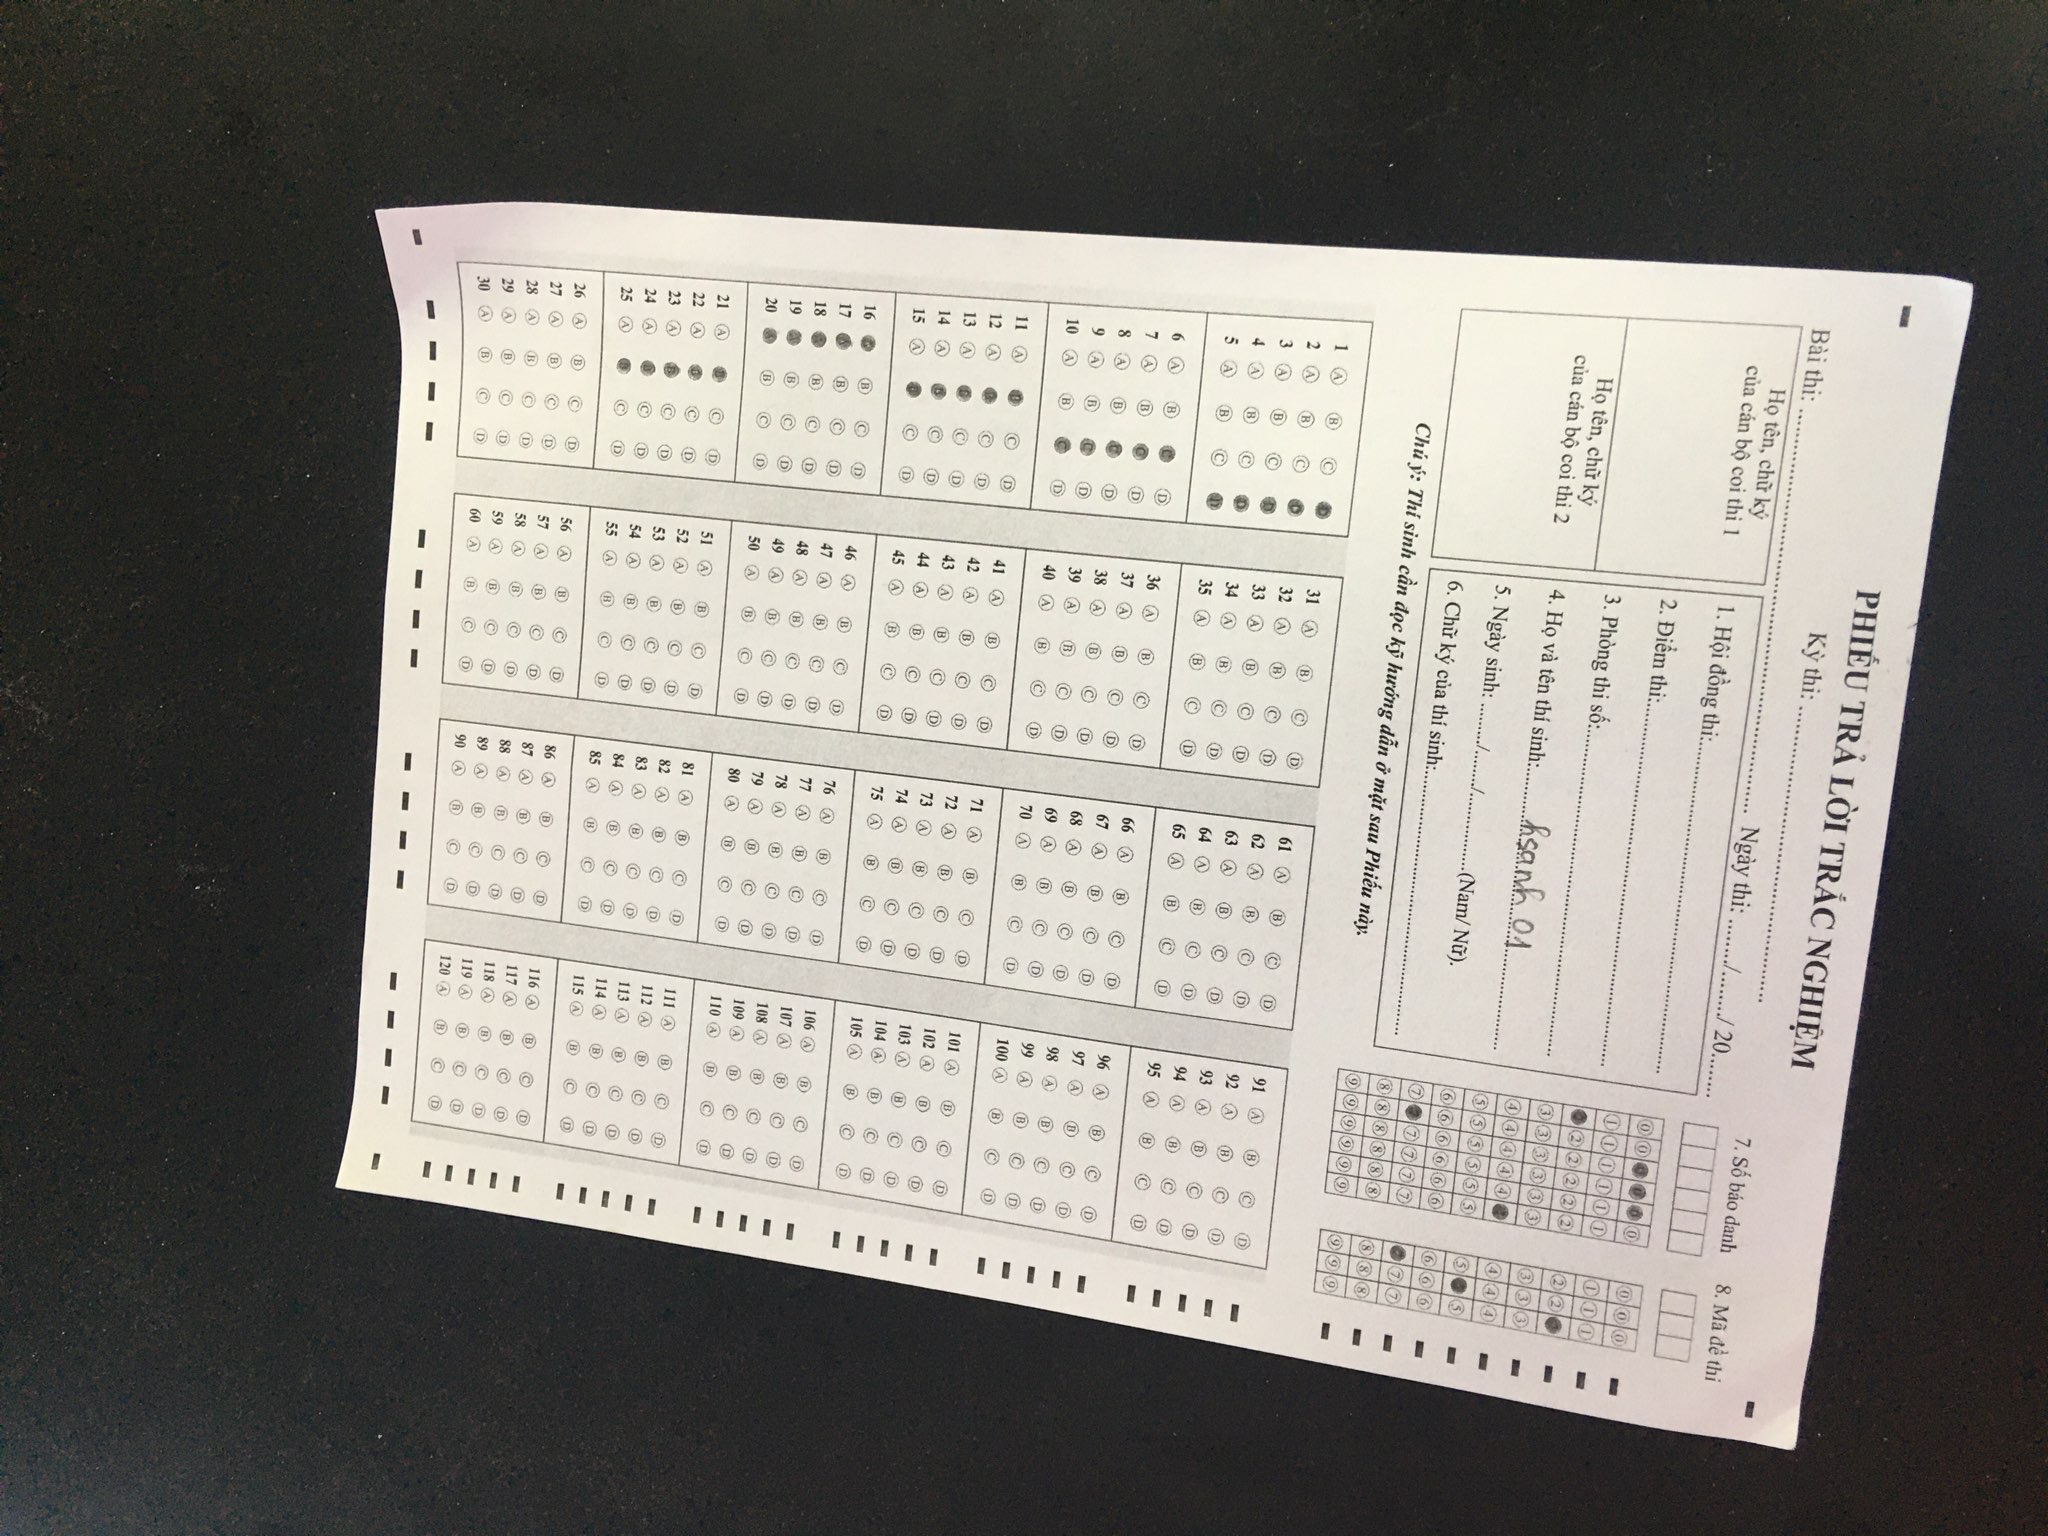 PHIẾU TRẢ LỜI TRẮC NGHIỆM
Kỳ thi: ........................................
Bài thi: ........................................ Ngày thi: ......../......../ 20........
Họ tên, chữ ký
của cán bộ coi thi 1
Họ tên, chữ ký
của cán bộ coi thi 2
1. Hội đồng thi:........................................
2. Điểm thi:........................................
3. Phòng thi số:........................................
4. Họ và tên thí sinh:........hsanh 01........
5. Ngày sinh: ......../......../................(Nam/ Nữ).
6. Chữ ký của thí sinh:........................................
7. Số báo danh
0 0 0 0
1 1 1 1 1 1
2 2 2 2 2
3 3 3 3 3 3
4 4 4 4 4
5 5 5 5 5 5
6 6 6 6 6 6
7 7 7 7 7
8 8 8 8 8 8
9 9 9 9 9 9
8. Mã đề thi
0 0 0
1 1 1
2 2
3 3 3
4 4 4
5 5
6 6 6
7 7
8 8 8
9 9 9
Chú ý: Thí sinh cần đọc kỹ hướng dẫn ở mặt sau Phiếu này.
1 A B C D
2 A B C D
3 A B C D
4 A B C D
5 A B C D
6 A B C D
7 A B C D
8 A B C D
9 A B C D
10 A B C D
11 A B C D
12 A B C D
13 A B C D
14 A B C D
15 A B C D
16 A B C D
17 A B C D
18 A B C D
19 A B C D
20 A B C D
21 A B C D
22 A B C D
23 A B C D
24 A B C D
25 A B C D
26 A B C D
27 A B C D
28 A B C D
29 A B C D
30 A B C D
31 A B C D
32 A B C D
33 A B C D
34 A B C D
35 A B C D
36 A B C D
37 A B C D
38 A B C D
39 A B C D
40 A B C D
41 A B C D
42 A B C D
43 A B C D
44 A B C D
45 A B C D
46 A B C D
47 A B C D
48 A B C D
49 A B C D
50 A B C D
51 A B C D
52 A B C D
53 A B C D
54 A B C D
55 A B C D
56 A B C D
57 A B C D
58 A B C D
59 A B C D
60 A B C D
61 A B C D
62 A B C D
63 A B C D
64 A B C D
65 A B C D
66 A B C D
67 A B C D
68 A B C D
69 A B C D
70 A B C D
71 A B C D
72 A B C D
73 A B C D
74 A B C D
75 A B C D
76 A B C D
77 A B C D
78 A B C D
79 A B C D
80 A B C D
81 A B C D
82 A B C D
83 A B C D
84 A B C D
85 A B C D
86 A B C D
87 A B C D
88 A B C D
89 A B C D
90 A B C D
91 A B C D
92 A B C D
93 A B C D
94 A B C D
95 A B C D
96 A B C D
97 A B C D
98 A B C D
99 A B C D
100 A B C D
101 A B C D
102 A B C D
103 A B C D
104 A B C D
105 A B C D
106 A B C D
107 A B C D
108 A B C D
109 A B C D
110 A B C D
111 A B C D
112 A B C D
113 A B C D
114 A B C D
115 A B C D
116 A B C D
117 A B C D
118 A B C D
119 A B C D
120 A B C D